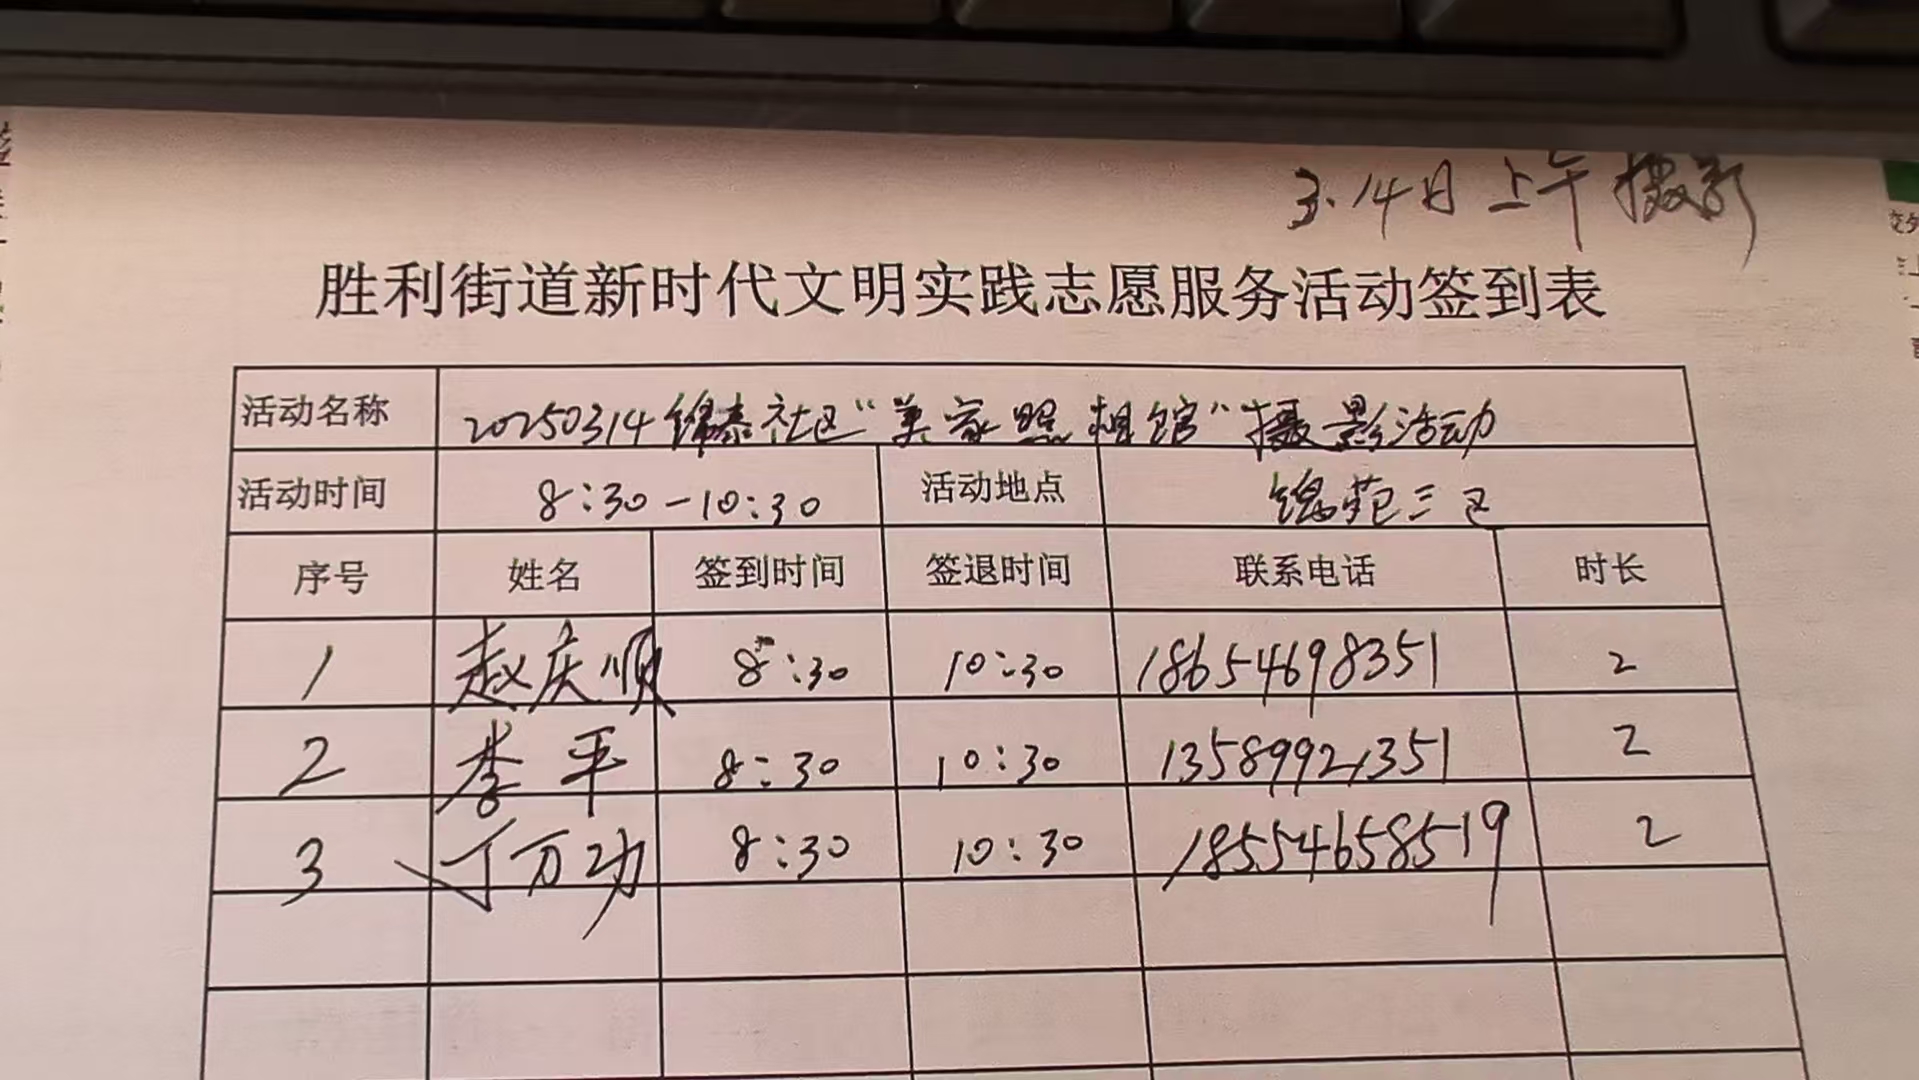 3.14日上午摄影
胜利街道新时代文明实践志愿服务活动签到表
活动名称 20250314锦泰社区“美家照相馆”摄影活动
活动时间 8:30-10:30 活动地点 锦苑三区
序号 姓名 签到时间 签退时间 联系电话 时长
1 赵庆顺 8:30 10:30 18654698351 2
2 李平 8:30 10:30 13589921351 2
3 丁万功 8:30 10:30 18554658519 2